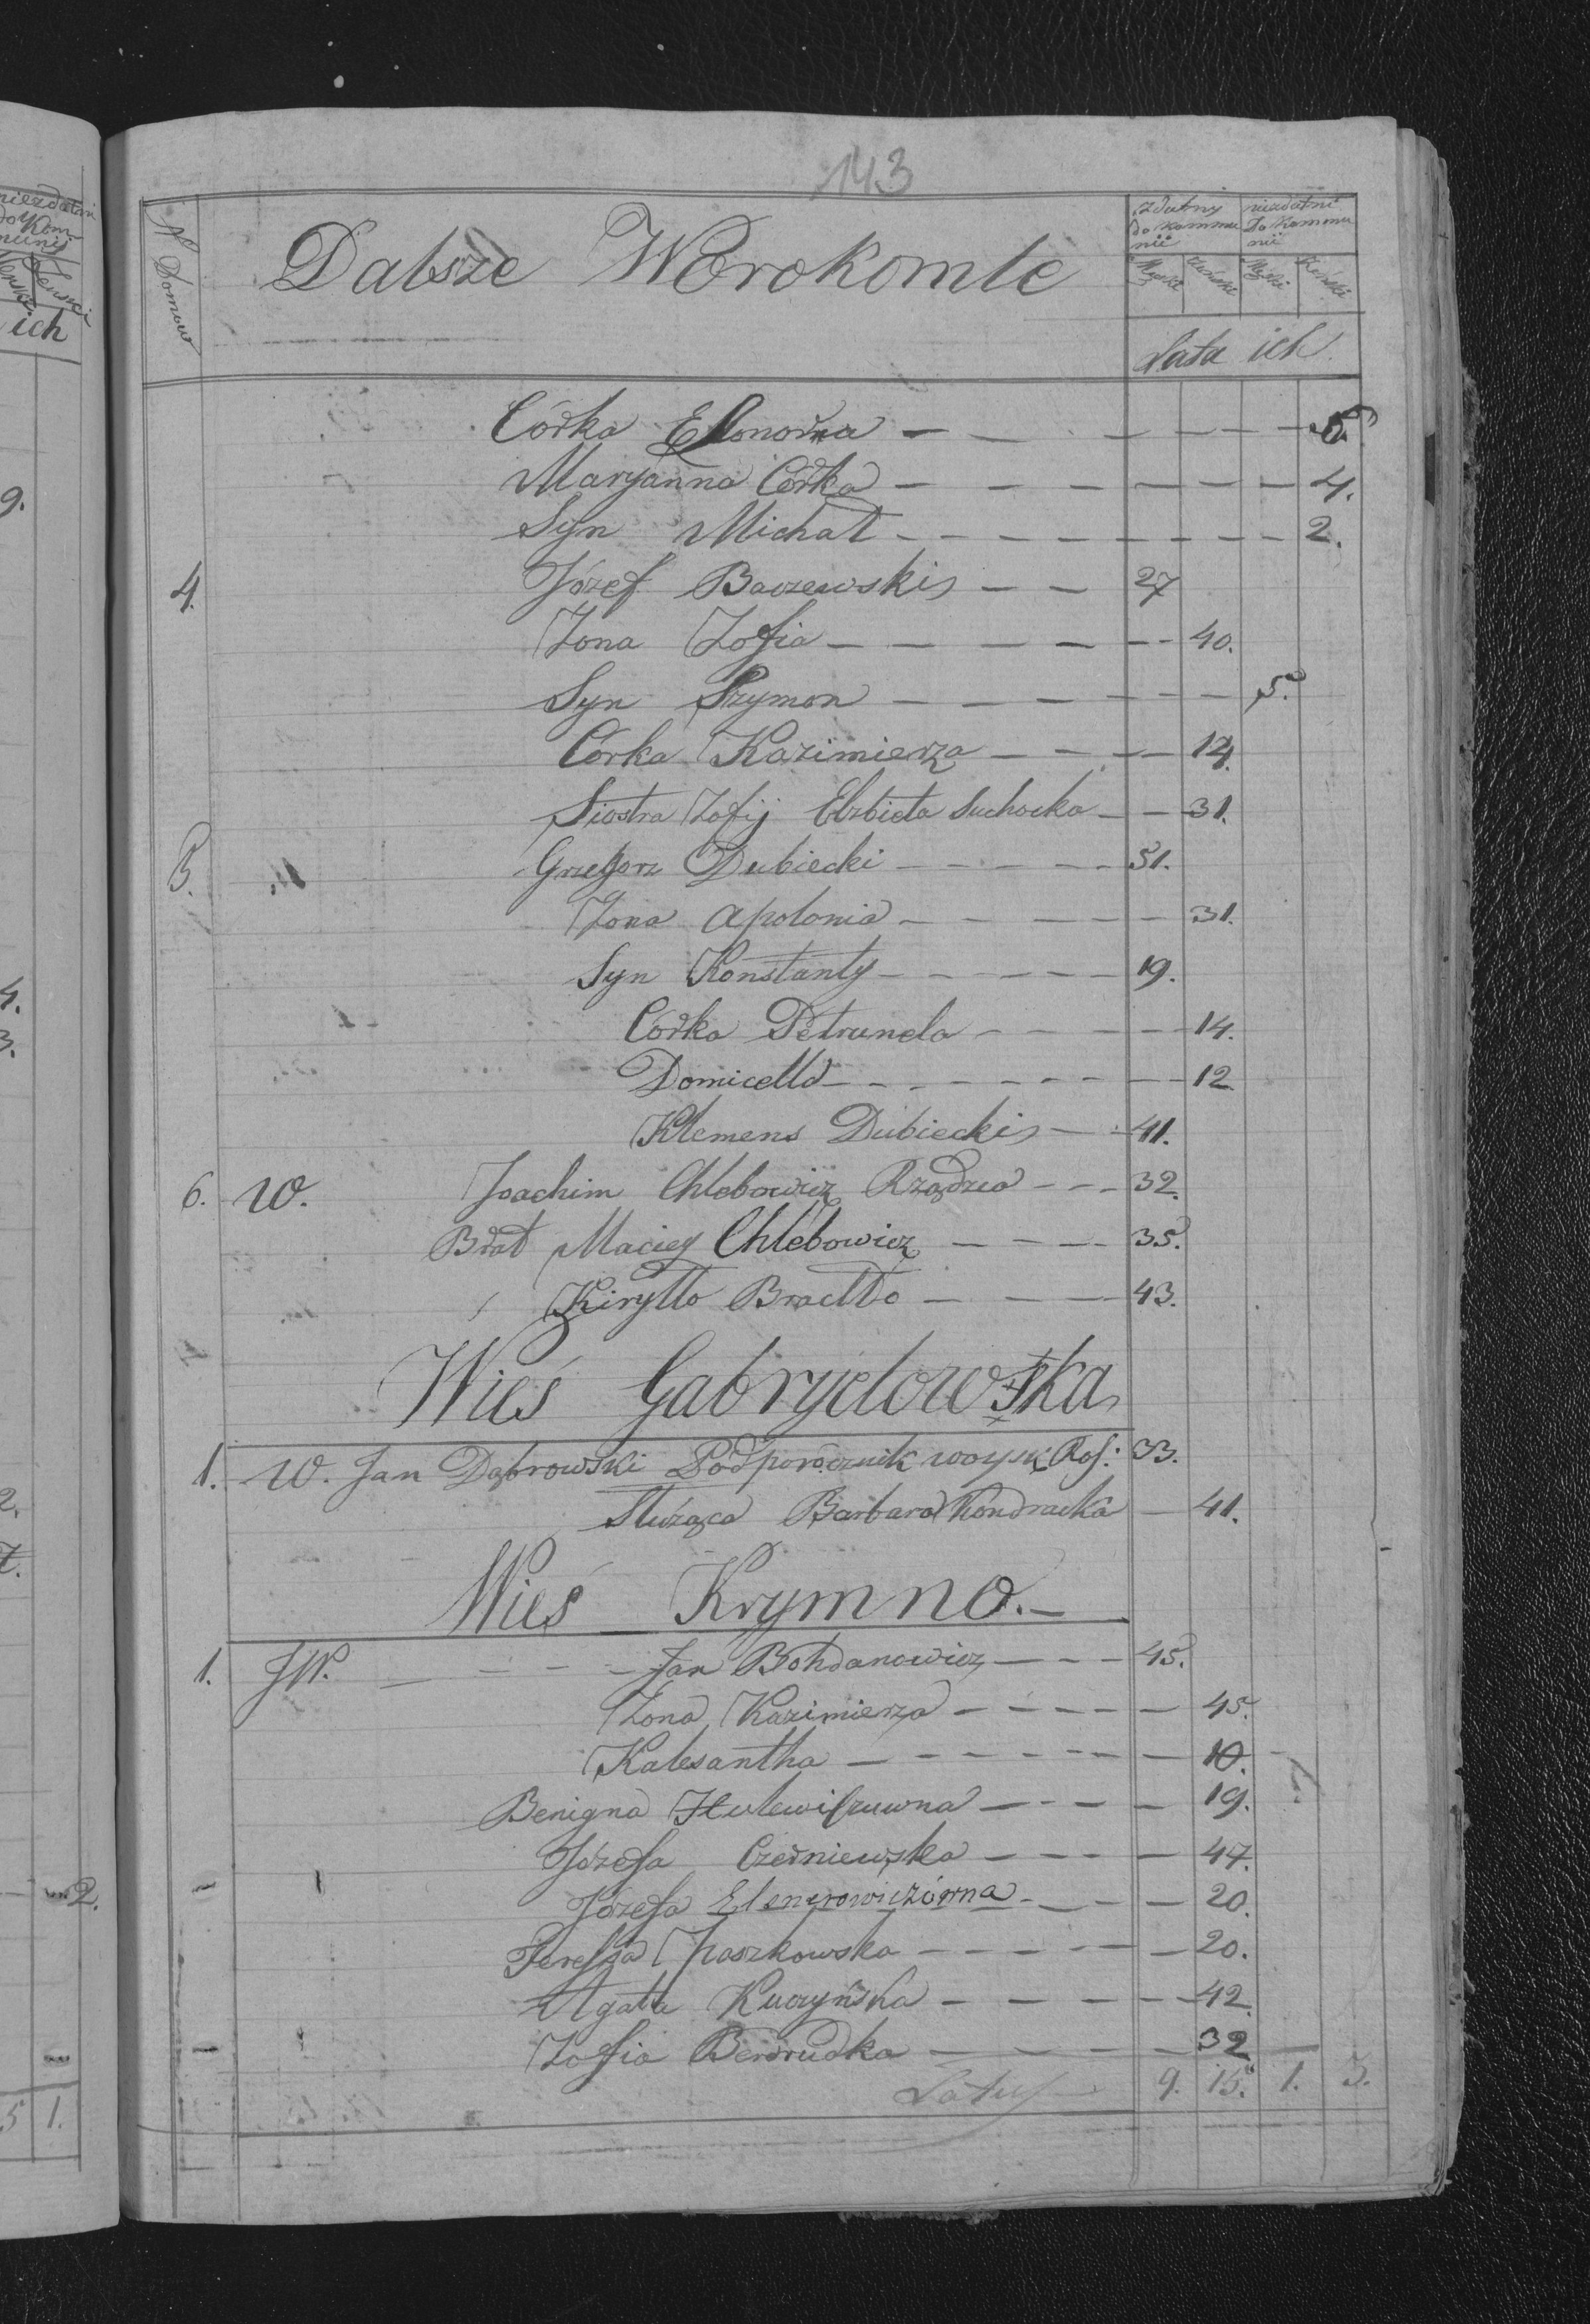 143
N Domow
Dalsze Worokomle
zdatny do kommunii
niezdatni do kommunii
Męski Żeński Męski Żeński
Lata ich
Córka Elonora — 5.
Maryanna Córka — 4.
Syn Michał — 2.
4. Józef Baczewski — 27
Żona Zofia — 40.
Syn Szymon — 5.
Córka Kazimierza — 14.
Siostra Zofij Elzbieta Suchocka — 31.
5. Grzegorz Dubiecki — 51.
Żona Apolonia — 31.
Syn Konstanty — 19.
Córka Petrunela — 14.
Domicella — 12
Klemens Dubiecki — 41.
6. W. Joachim Chlebowicz Rządzca — 32.
Brat Maciey Chlebowicz — 35.
Kiryłło — 43.
Wieś Gabryelowska
1. W. Jan Dąbrowski Podporucznik woysk Ros: 33.
Służąca Barbara Kondracka — 41.
Wieś Krymno.
1. JW. — Jan Bohdanowicz — 45.
Żona Kazimierza — 45.
Kalesantha — 10.
Benigna — 19.
Józefa Czerniewska — 47.
Józefa — 20.
Teressa Paszkowska — 20.
Agata Kuczyńska — 42.
Zofia — 32
Latus 9. 15. 1. 3.
niezdatni do Kommunij
Żenski
ich
9.
4.
3.
2.
7.
2.
5 1.